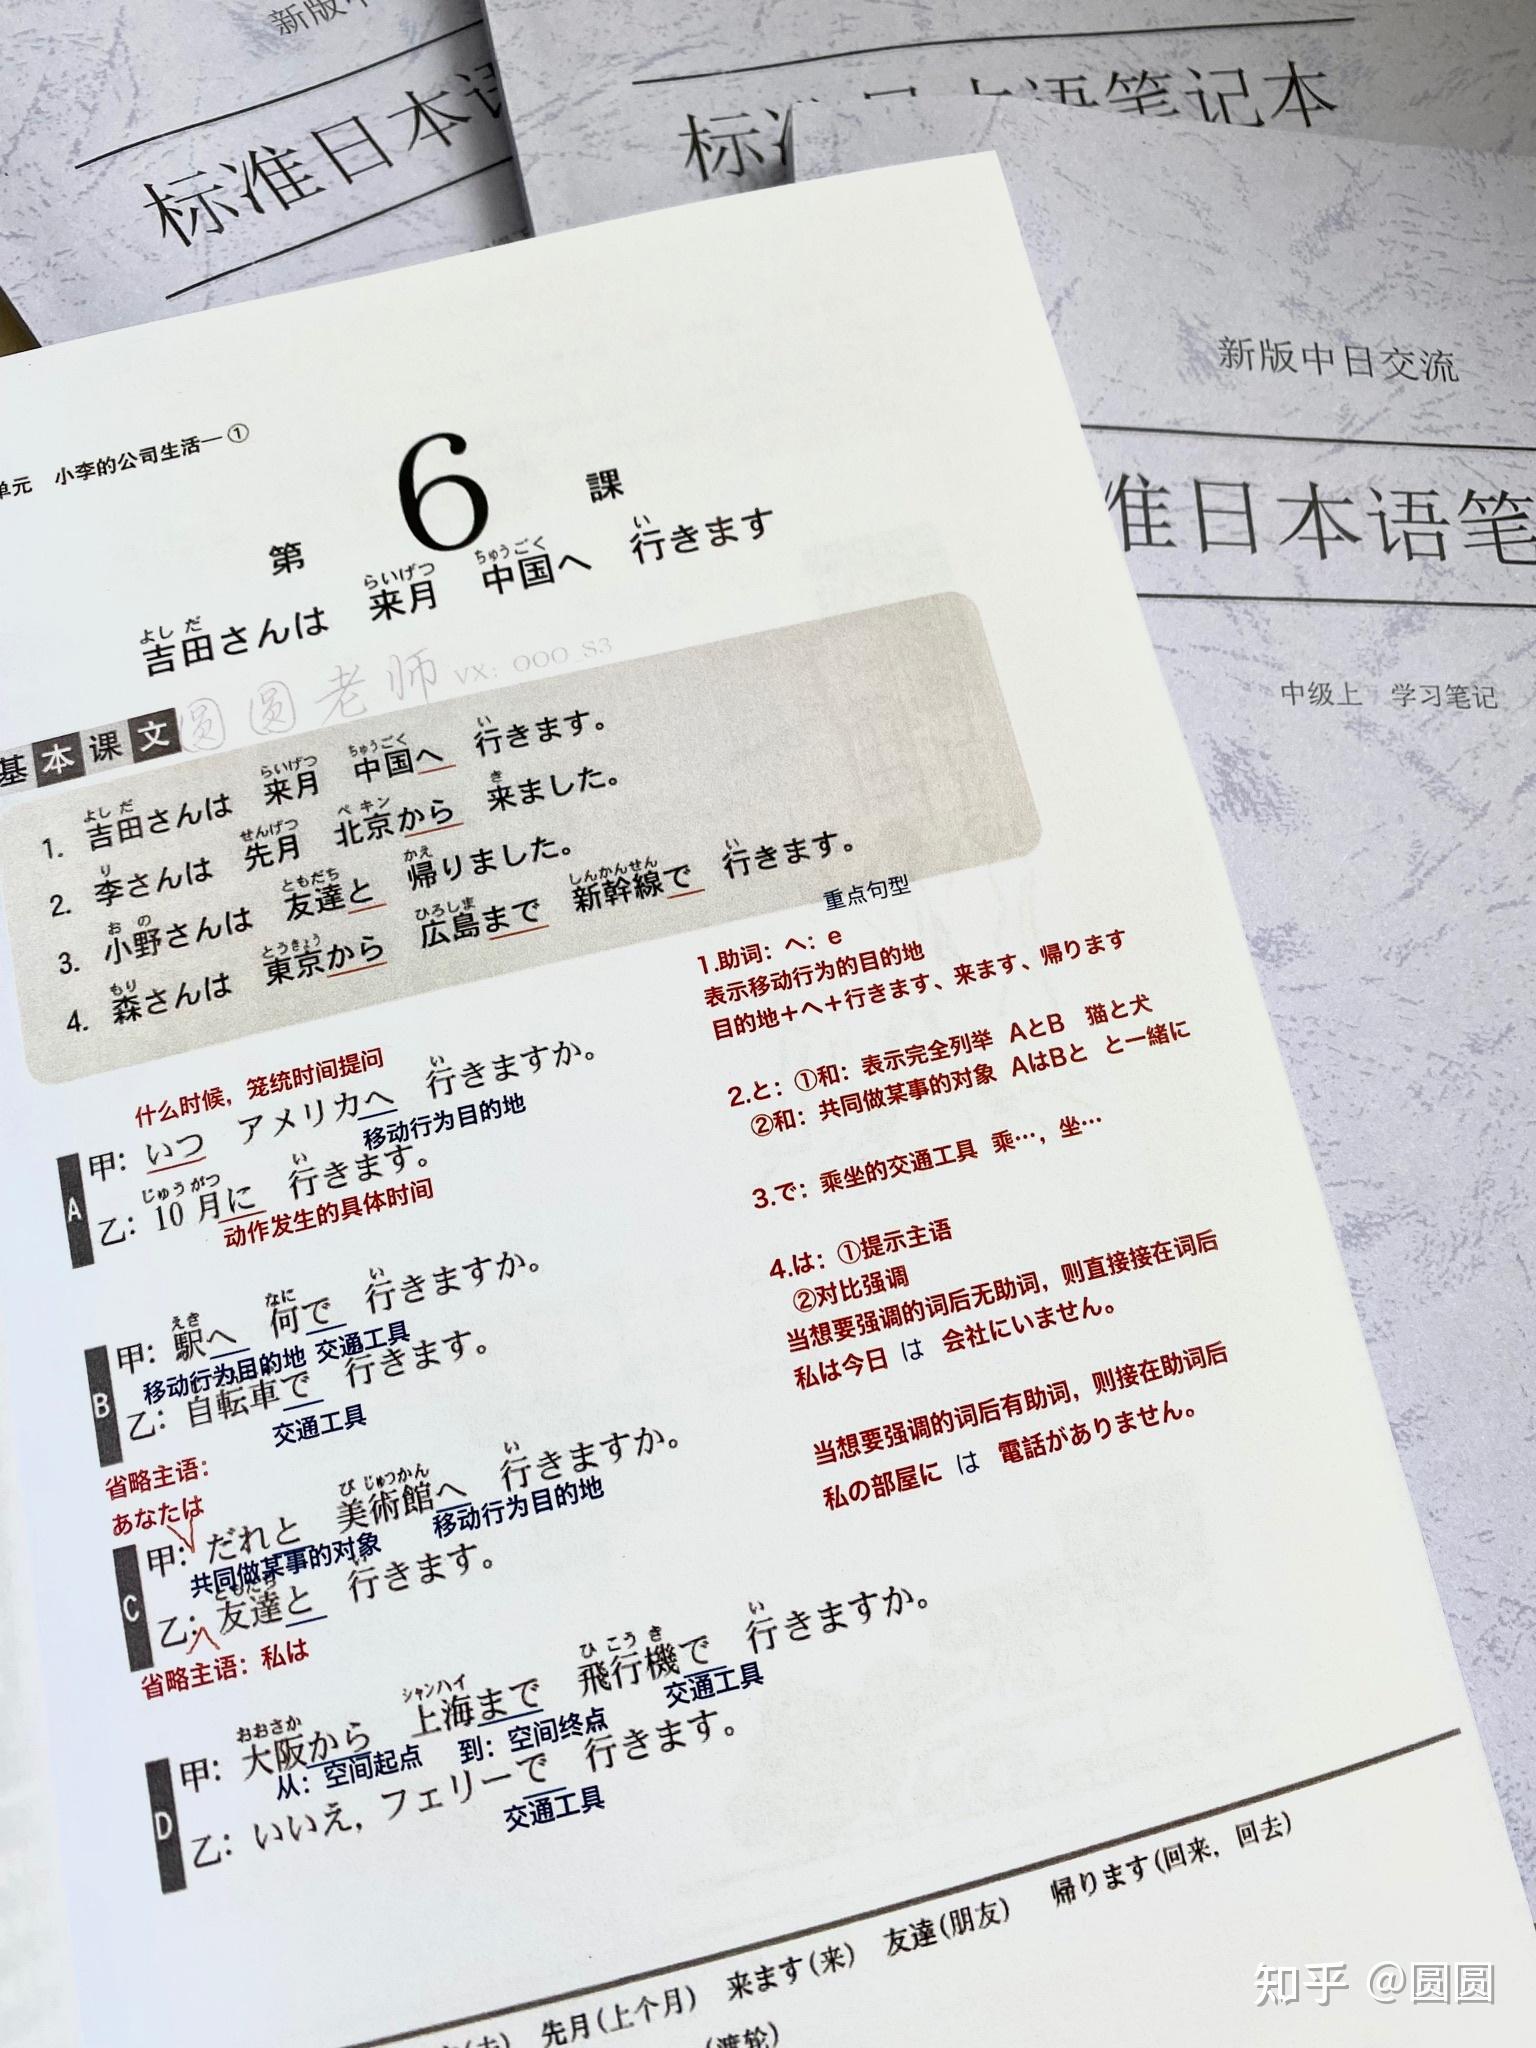 新版中
标准日本语
标准日本语笔记本
新版中日交流
准日本语笔
中级上 学习笔记
单元 小李的公司生活一①
第 6 課
よしだ らいげつ ちゅうごく い
吉田さんは 来月 中国へ 行きます
圆圆老师 VX: OOO_S3
基本课文
よしだ らいげつ ちゅうごく い
1. 吉田さんは 来月 中国へ 行きます。
り せんげつ ペキン き
2. 李さんは 先月 北京から 来ました。
おの ともだち かえ
3. 小野さんは 友達と 帰りました。
もり とうきょう ひろしま しんかんせん い
4. 森さんは 東京から 広島まで 新幹線で 行きます。
什么时候，笼统时间提问
い
甲：いつ アメリカへ 行きますか。
移动行为目的地
A
じゅうがつ い
乙：10月に 行きます。
动作发生的具体时间
えき なに い
甲：駅へ 何で 行きますか。
移动行为目的地 交通工具
B
乙：自転車で 行きます。
交通工具
省略主语：
あなたは
びじゅつかん い
甲：だれと 美術館へ 行きますか。
共同做某事的对象 移动行为目的地
C
ともだち い
乙：友達と 行きます。
省略主语：私は
おおさか シャンハイ ひこうき い
甲：大阪から 上海まで 飛行機で 行きますか。
从：空间起点 到：空间终点 交通工具
D
乙：いいえ，フェリーで 行きます。
交通工具
重点句型
1.助词：へ：e
表示移动行为的目的地
目的地＋へ＋行きます、来ます、帰ります
2.と：①和：表示完全列举 AとB 猫と犬
②和：共同做某事的对象 AはBと と一緒に
3.で：乘坐的交通工具 乘…，坐…
4.は：①提示主语
②对比强调
当想要强调的词后无助词，则直接接在词后
私は今日 は 会社にいません。
当想要强调的词后有助词，则接在助词后
私の部屋に は 電話がありません。
先月(上个月) 来ます(来) 友達(朋友) 帰ります(回来，回去)
(渡轮)
知乎 @圆圆